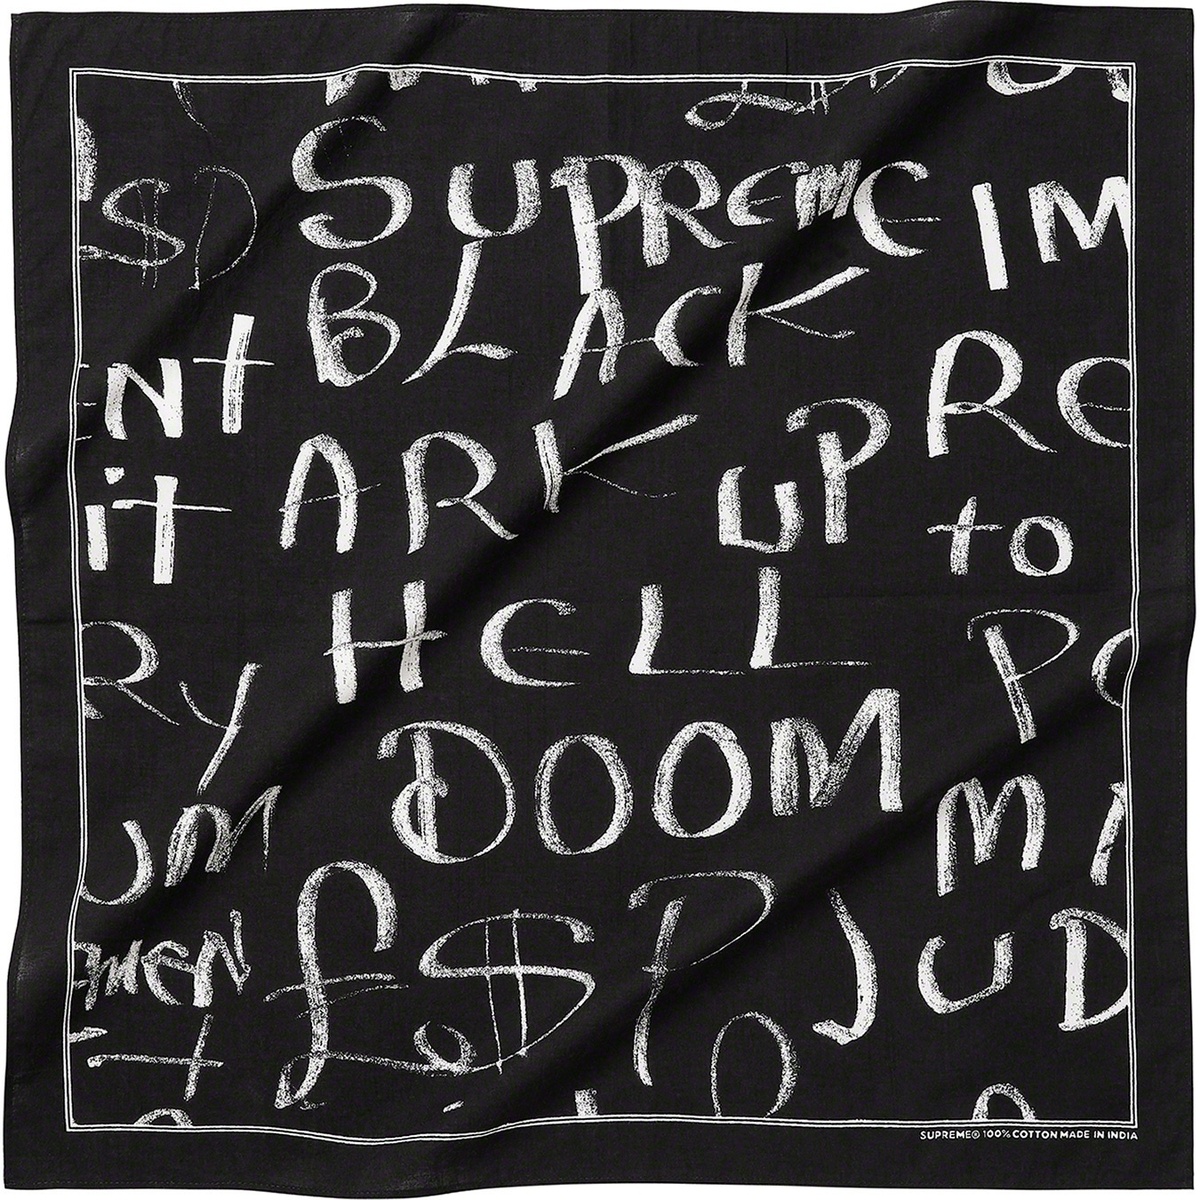 $D SUPREME IM
BLACK
Nt RE
ARK UP
it to
HELL
RY PO
DOOM
UM M
£$P JUD
MEN
SUPREME® 100% COTTON MADE IN INDIA